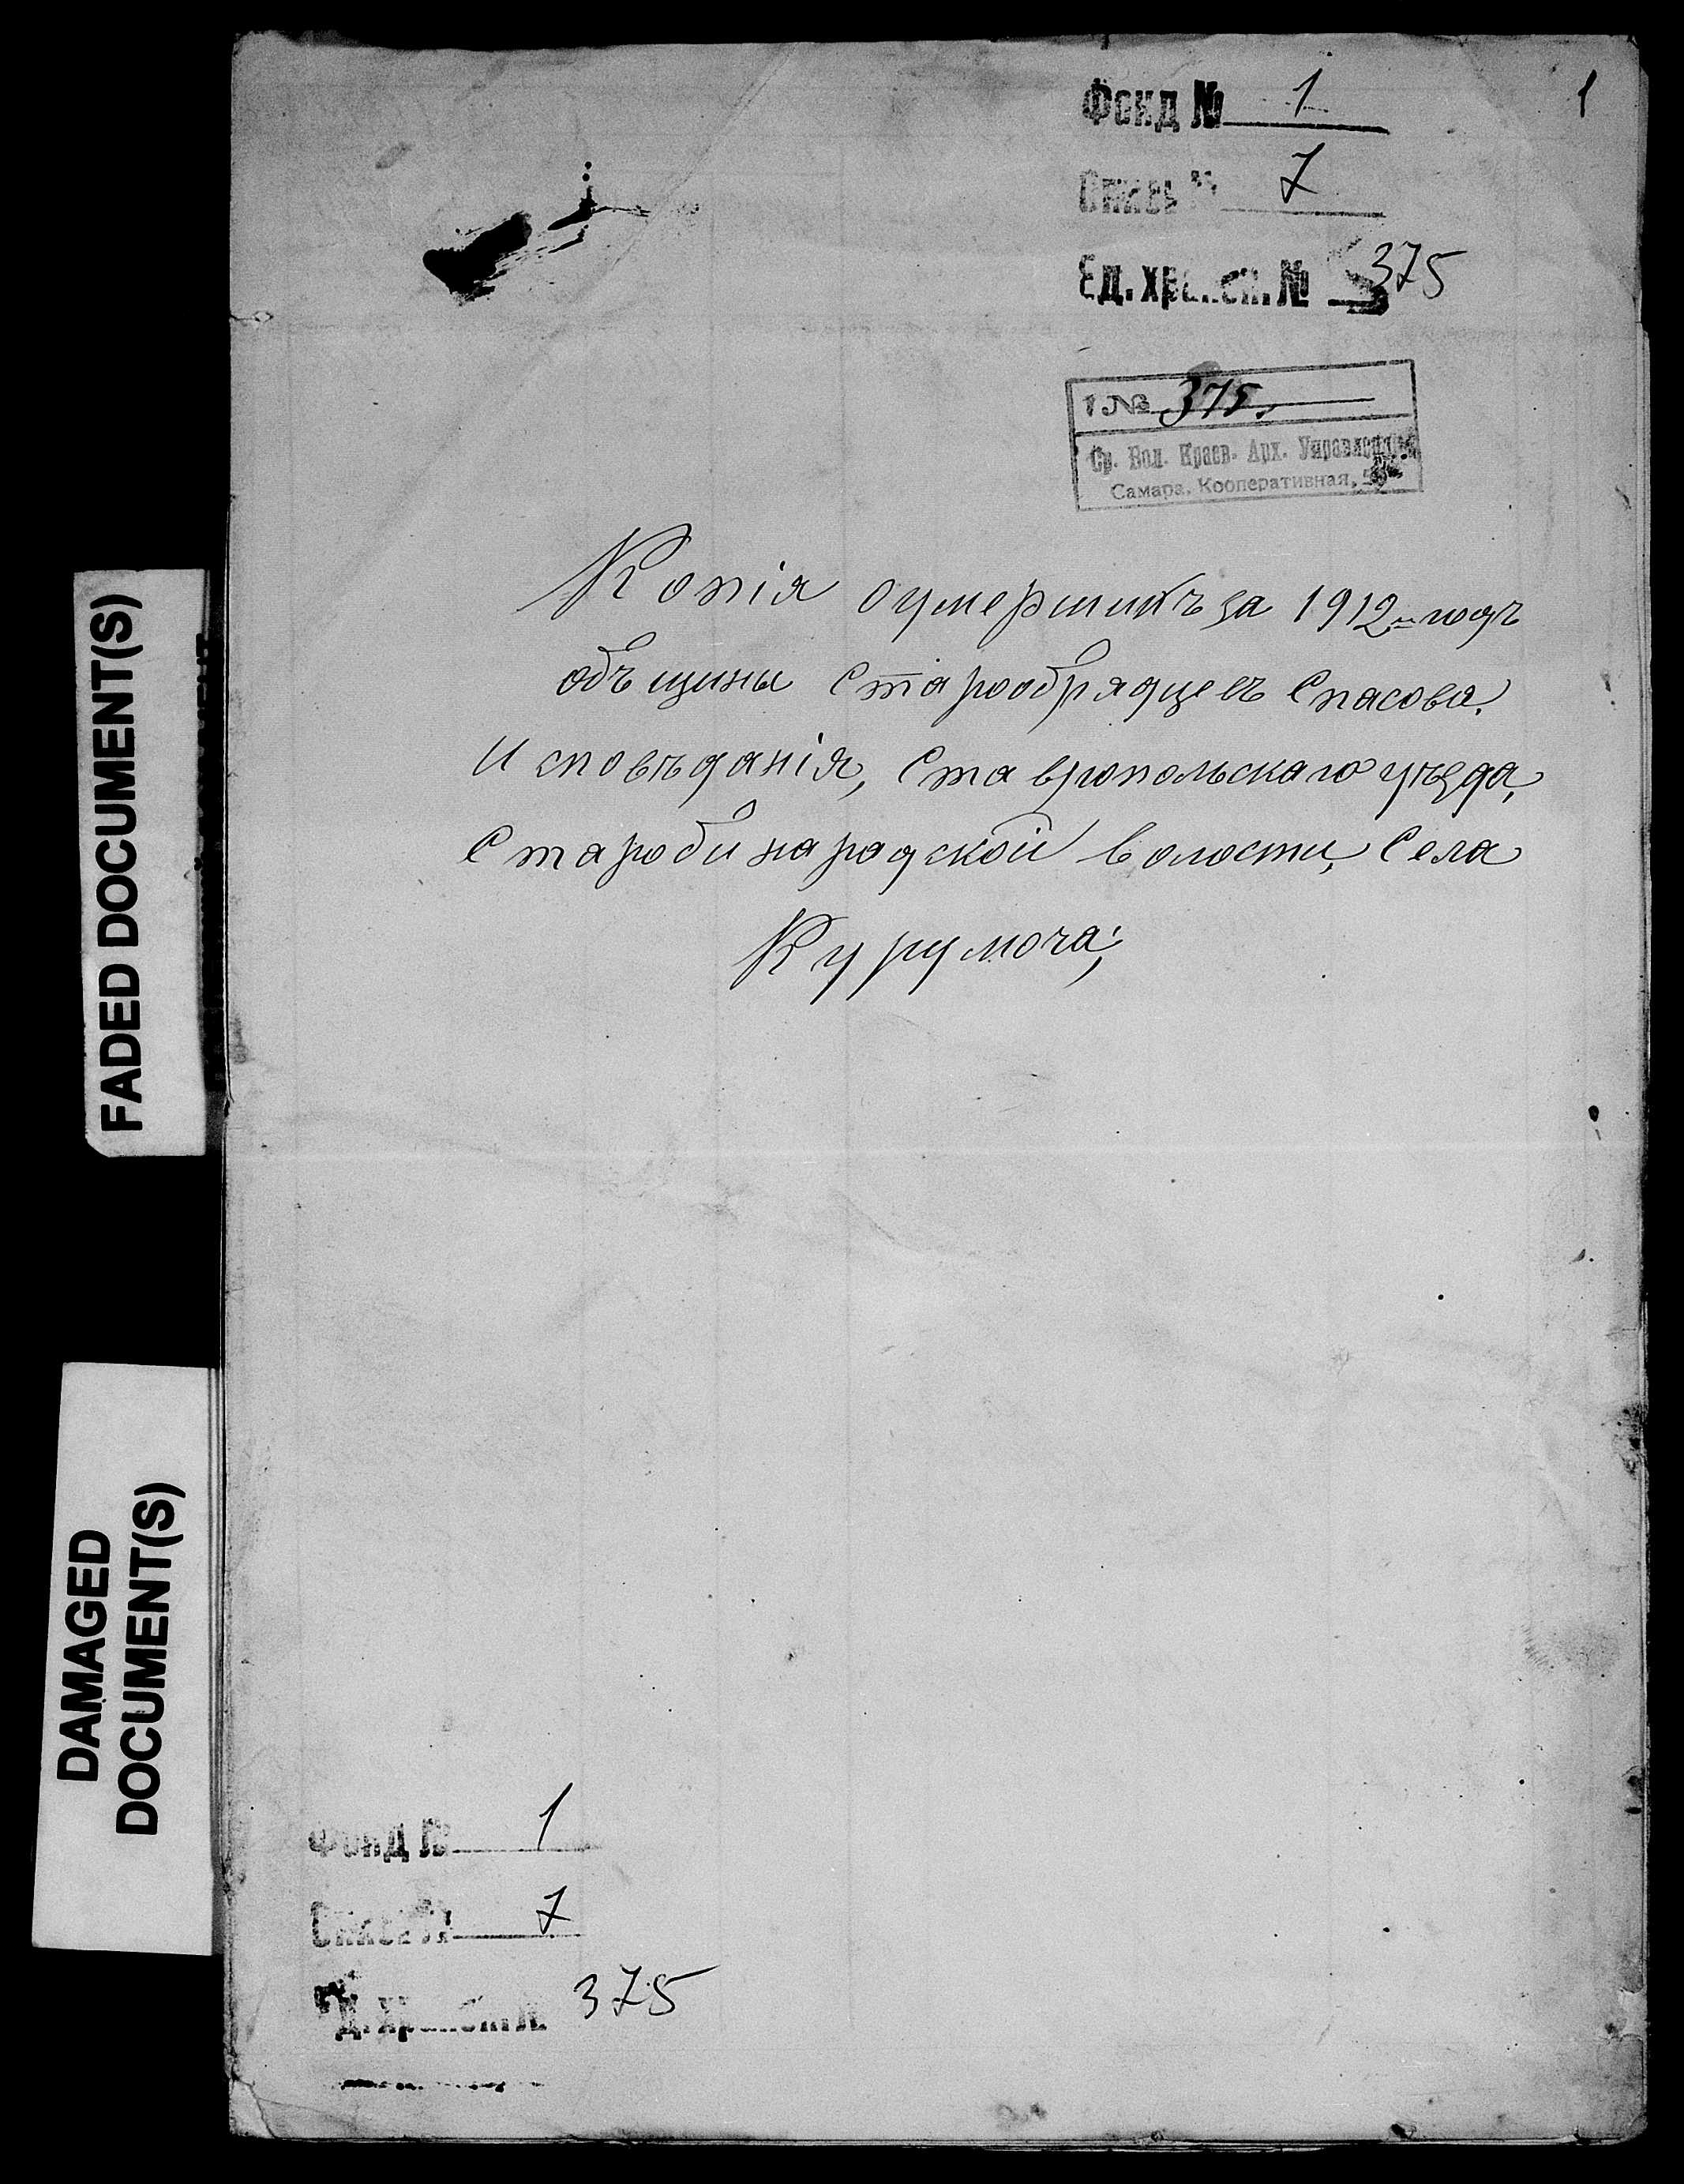 Фонд № 1
1
Опись № 7
Ед. хранен. № 375
1 № 375.
Ср. Вол. Краев. Арх. Управление
Самара, Кооперативная,
Копія оумершихъ за 1912-й годъ
объщины Старообрядцевъ Спасова.
Исповѣданія, Ставропольскаго уѣзда,
Старобинарадской волости, Села
Курумоча;
FADED DOCUMENT(S)
DAMAGED
DOCUMENT(S)
Фонд № 1
Опись № 7
Ед. хранен. № 375